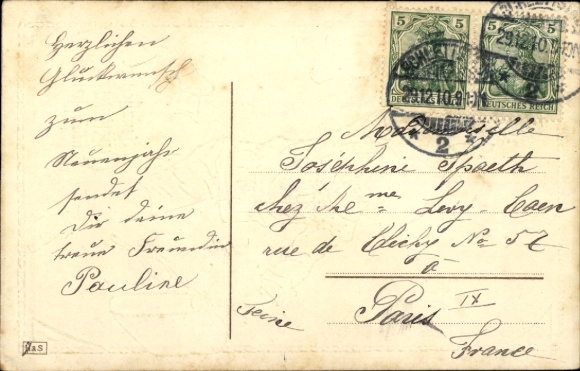 Herzlichen
Glückwunsch
zum
Neuenjahr
sendet
Dir deine
treue Freundin
Pauline
5 5 5
DEUTSCHES REICH
29.12.10.
2
2
Mademoiselle
Joséphine Spaeth
chez Me me Levy-Caen
rue de Clichy No 57
à
Paris IX
Seine
France